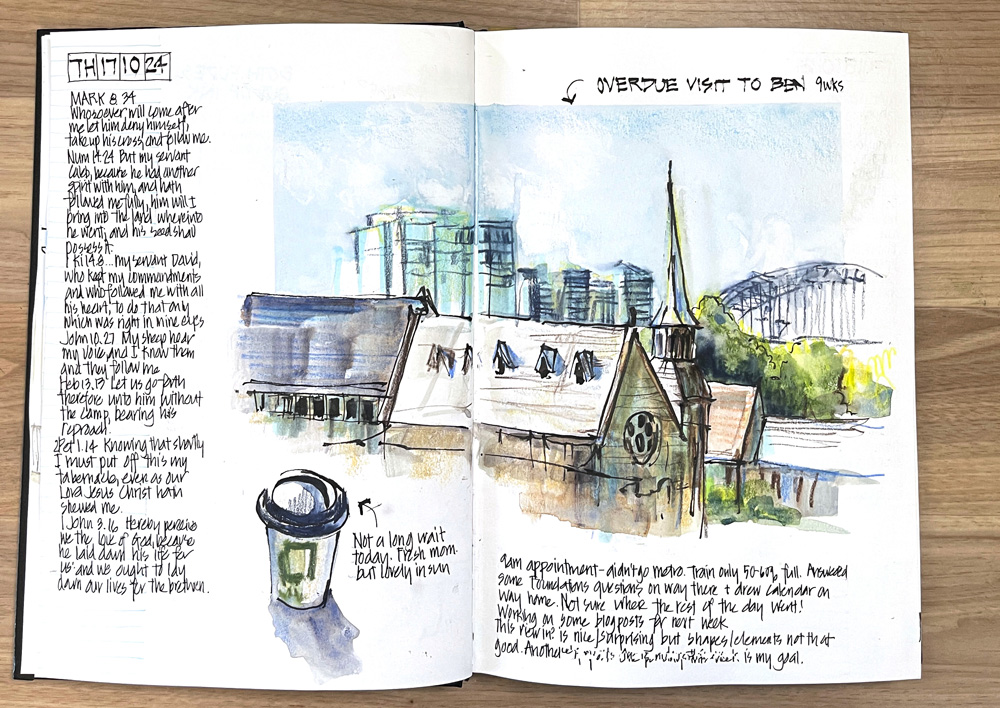 TH 17 10 24
MARK 8 34
Whosoever will come after
me let him deny himself,
take up his cross, and follow me.
Num 14.24 But my servant
Caleb, because he had another
spirit with him, and hath
followed me fully, him will I
bring into the land whereinto
he went; and his seed shall
possess it.
1 Ki 14.8 ... my servant David,
who kept my commandments
and who followed me with all
his heart, to do that only
which was right in mine eyes
John 10.27 My sheep hear
my voice, and I know them
and they follow me
Heb 13.13 Let us go forth
therefore unto him without
the camp, bearing his
reproach.
2 Pet 1.14 Knowing that shortly
I must put off this my
tabernacle, even as our
Lord Jesus Christ hath
shewed me.
1 John 3.16 Hereby perceive
we the love of God, because
he laid down his life for
us: and we ought to lay
down our lives for the brethren.
OVERDUE VISIT TO BEN 9wks
Not a long wait
today. Fresh morn.
but lovely in sun
9am appointment - didn't go metro. Train only 50-60% full. Answered
some Foundations questions on way there + drew calendar on
way home. Not sure where the rest of the day went!
Working on some blogposts for next week
This view in? is nice/surprising but shapes/elements not that
good. Another is my goal.